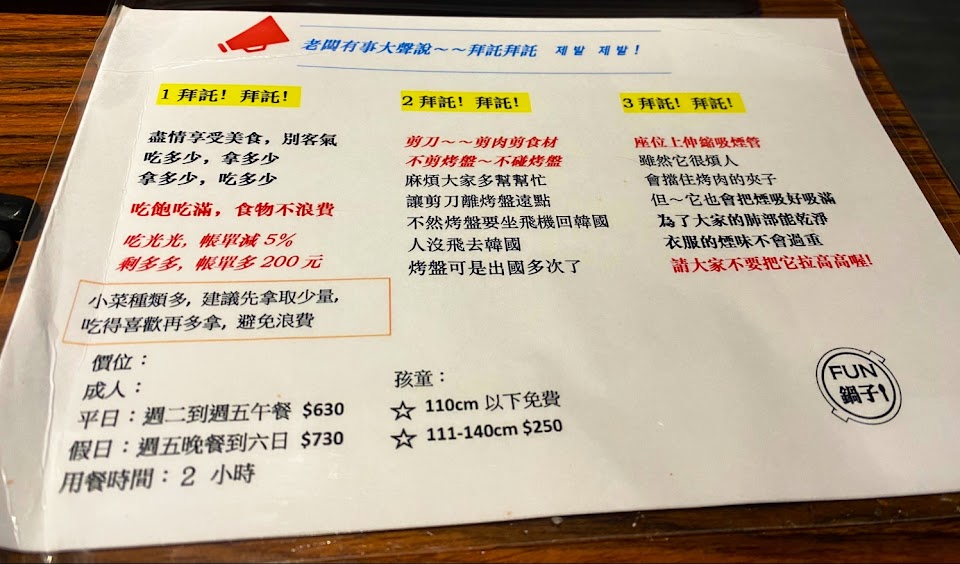 老闆有事大聲說～～拜託拜託 제발 제발!
1 拜託! 拜託!
盡情享受美食，別客氣
吃多少，拿多少
拿多少，吃多少
吃飽吃滿，食物不浪費
吃光光，帳單減 5%
剩多多，帳單多 200 元
小菜種類多, 建議先拿取少量,
吃得喜歡再多拿, 避免浪費
2 拜託! 拜託!
剪刀～～剪肉剪食材
不剪烤盤～不碰烤盤
麻煩大家多幫幫忙
讓剪刀離烤盤遠點
不然烤盤要坐飛機回韓國
人沒飛去韓國
烤盤可是出國多次了
3 拜託! 拜託!
座位上伸縮吸煙管
雖然它很煩人
會擋住烤肉的夾子
但～它也會把煙吸好吸滿
為了大家的肺部能乾淨
衣服的煙味不會過重
請大家不要把它拉高高喔!
價位：
成人：
平日：週二到週五午餐 $630
假日：週五晚餐到六日 $730
用餐時間：2 小時
孩童：
☆ 110cm 以下免費
☆ 111-140cm $250
FUN
鍋子